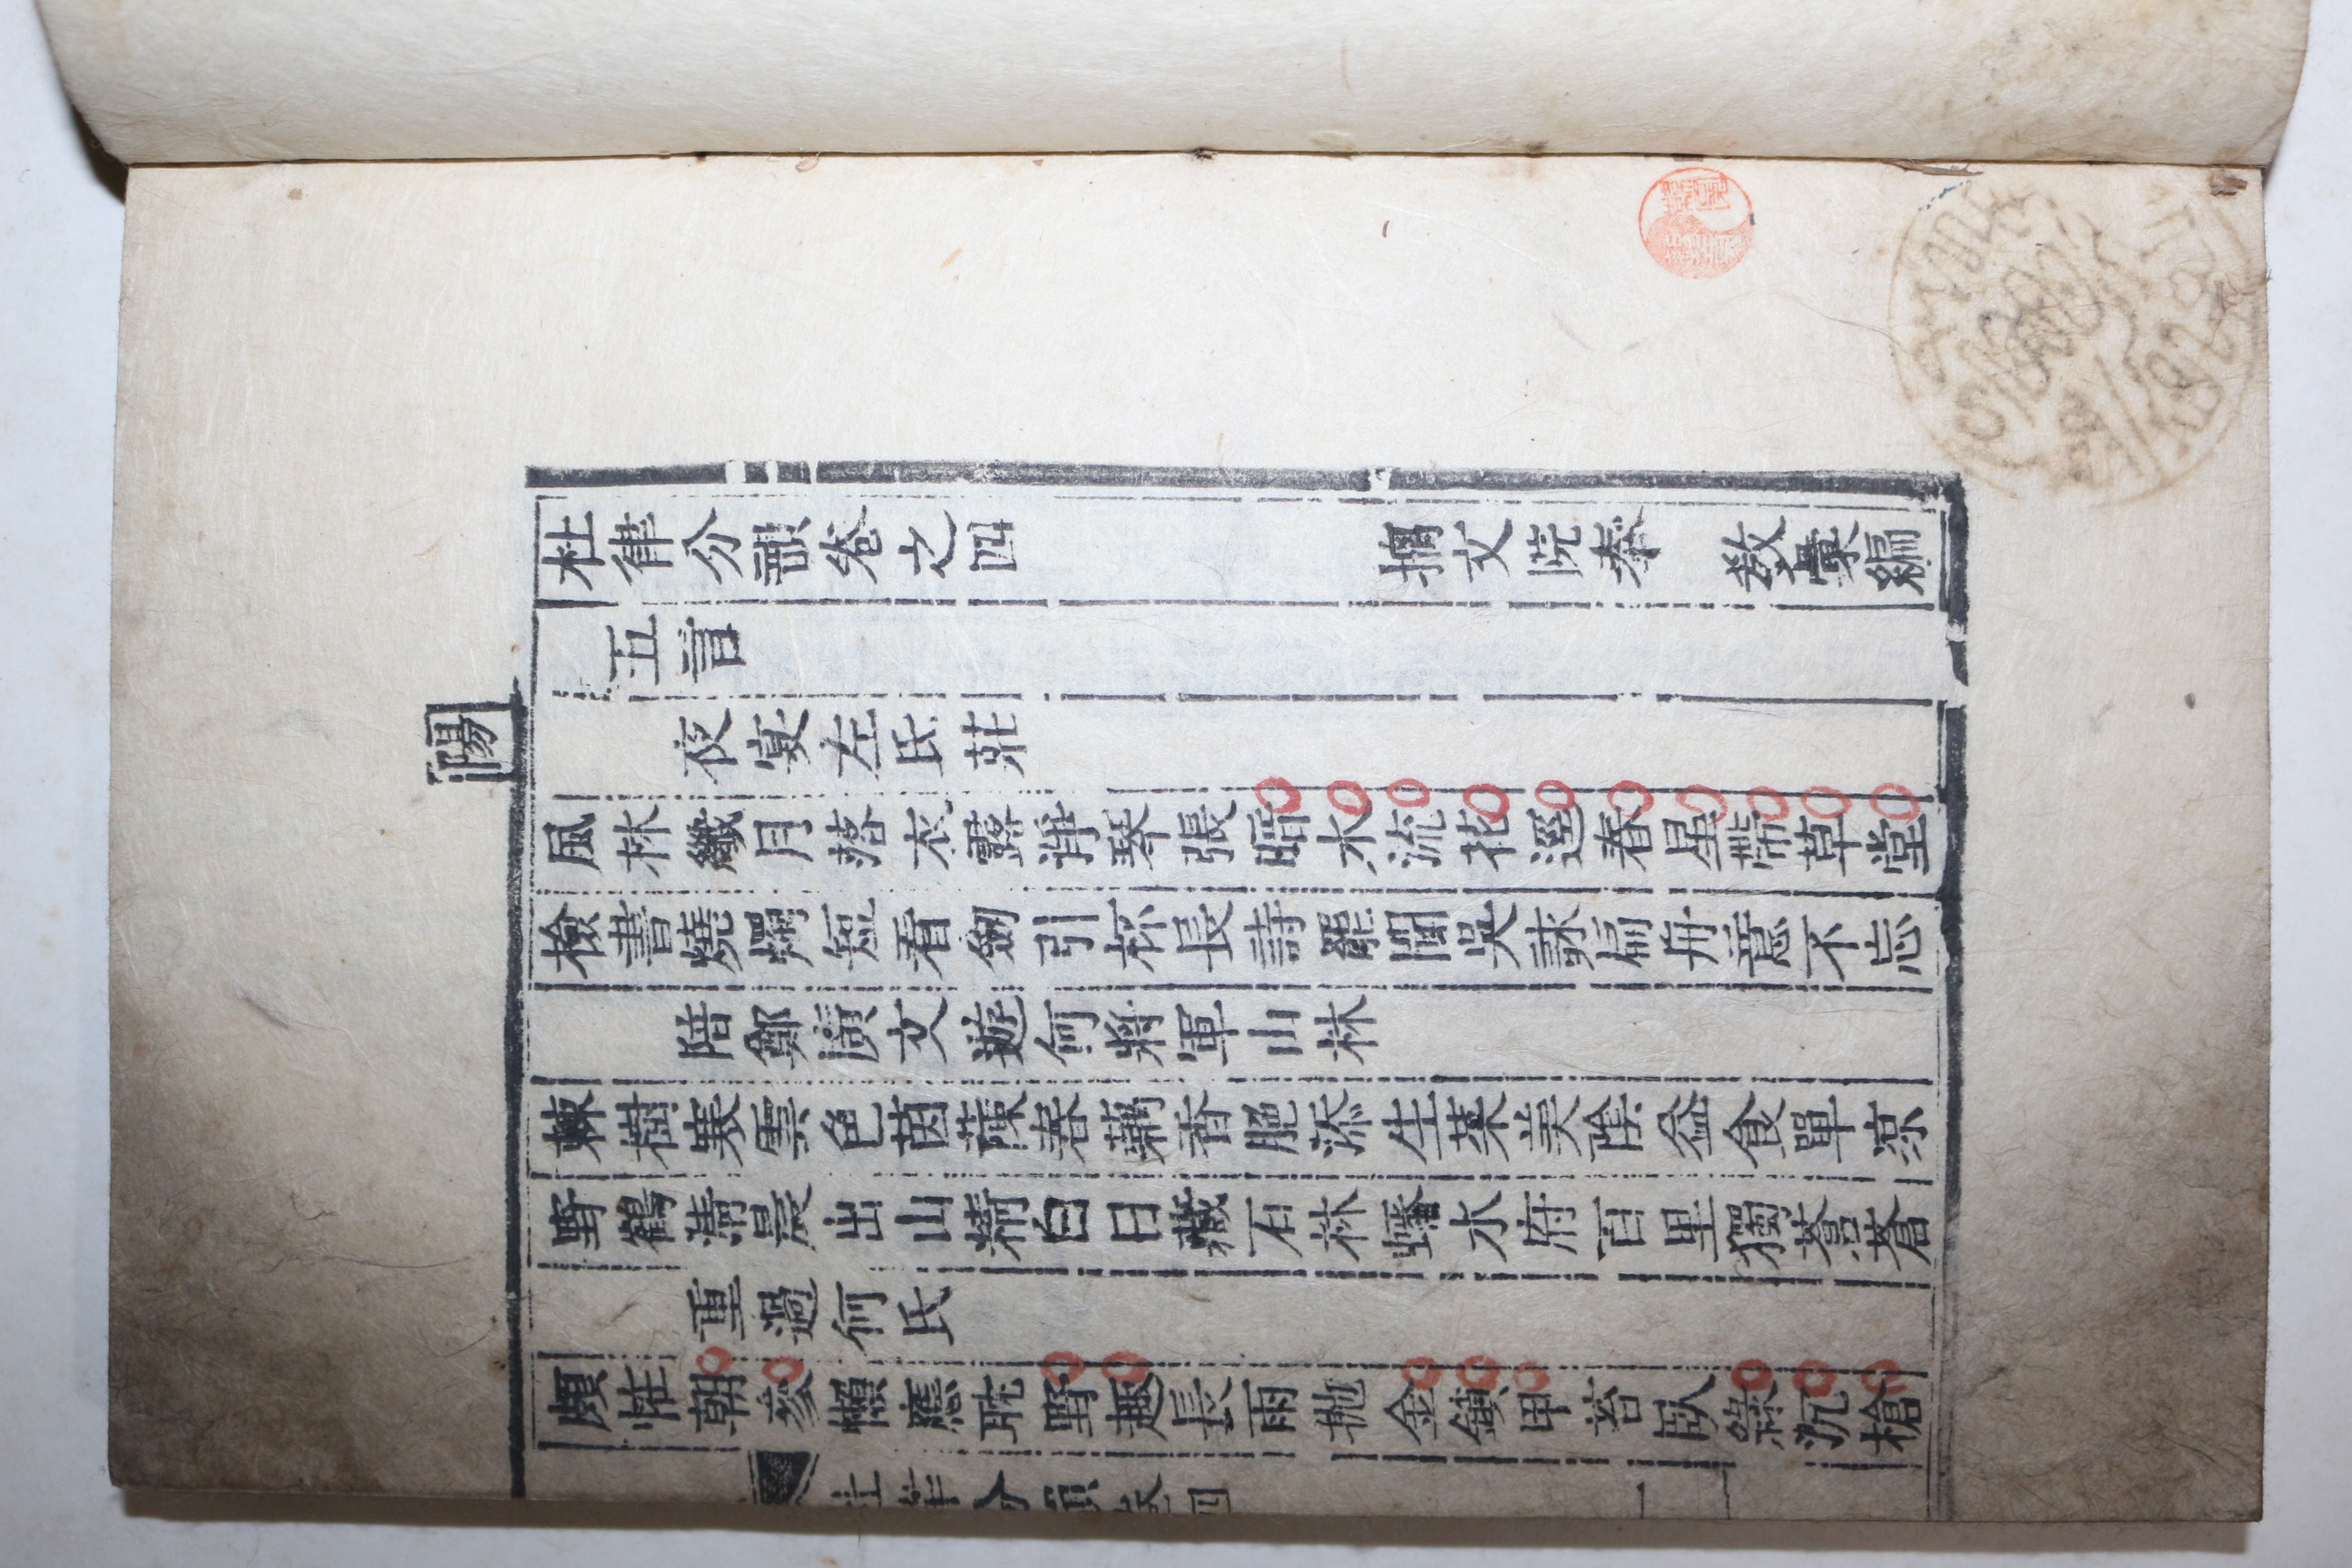 陽
杜律分韻卷之四 摛文院奉 敎彙編
五言
夜宴左氏莊
風林纖月落衣露淨琴張暗水流花逕春星帶草堂
檢書燒燭短看劒引杯長詩罷聞吳詠扁舟意不忘
陪鄭廣文遊何將軍山林
棘樹寒雲色茵蔯春藕香脆添生菜美陰益食單凉
野鶴淸晨出山精白日藏石林蟠水府百里獨蒼蒼
重過何氏
頗怪朝參懶應耽野趣長雨抛金鎖甲苔臥綠沉槍
杜律分韻卷四 一